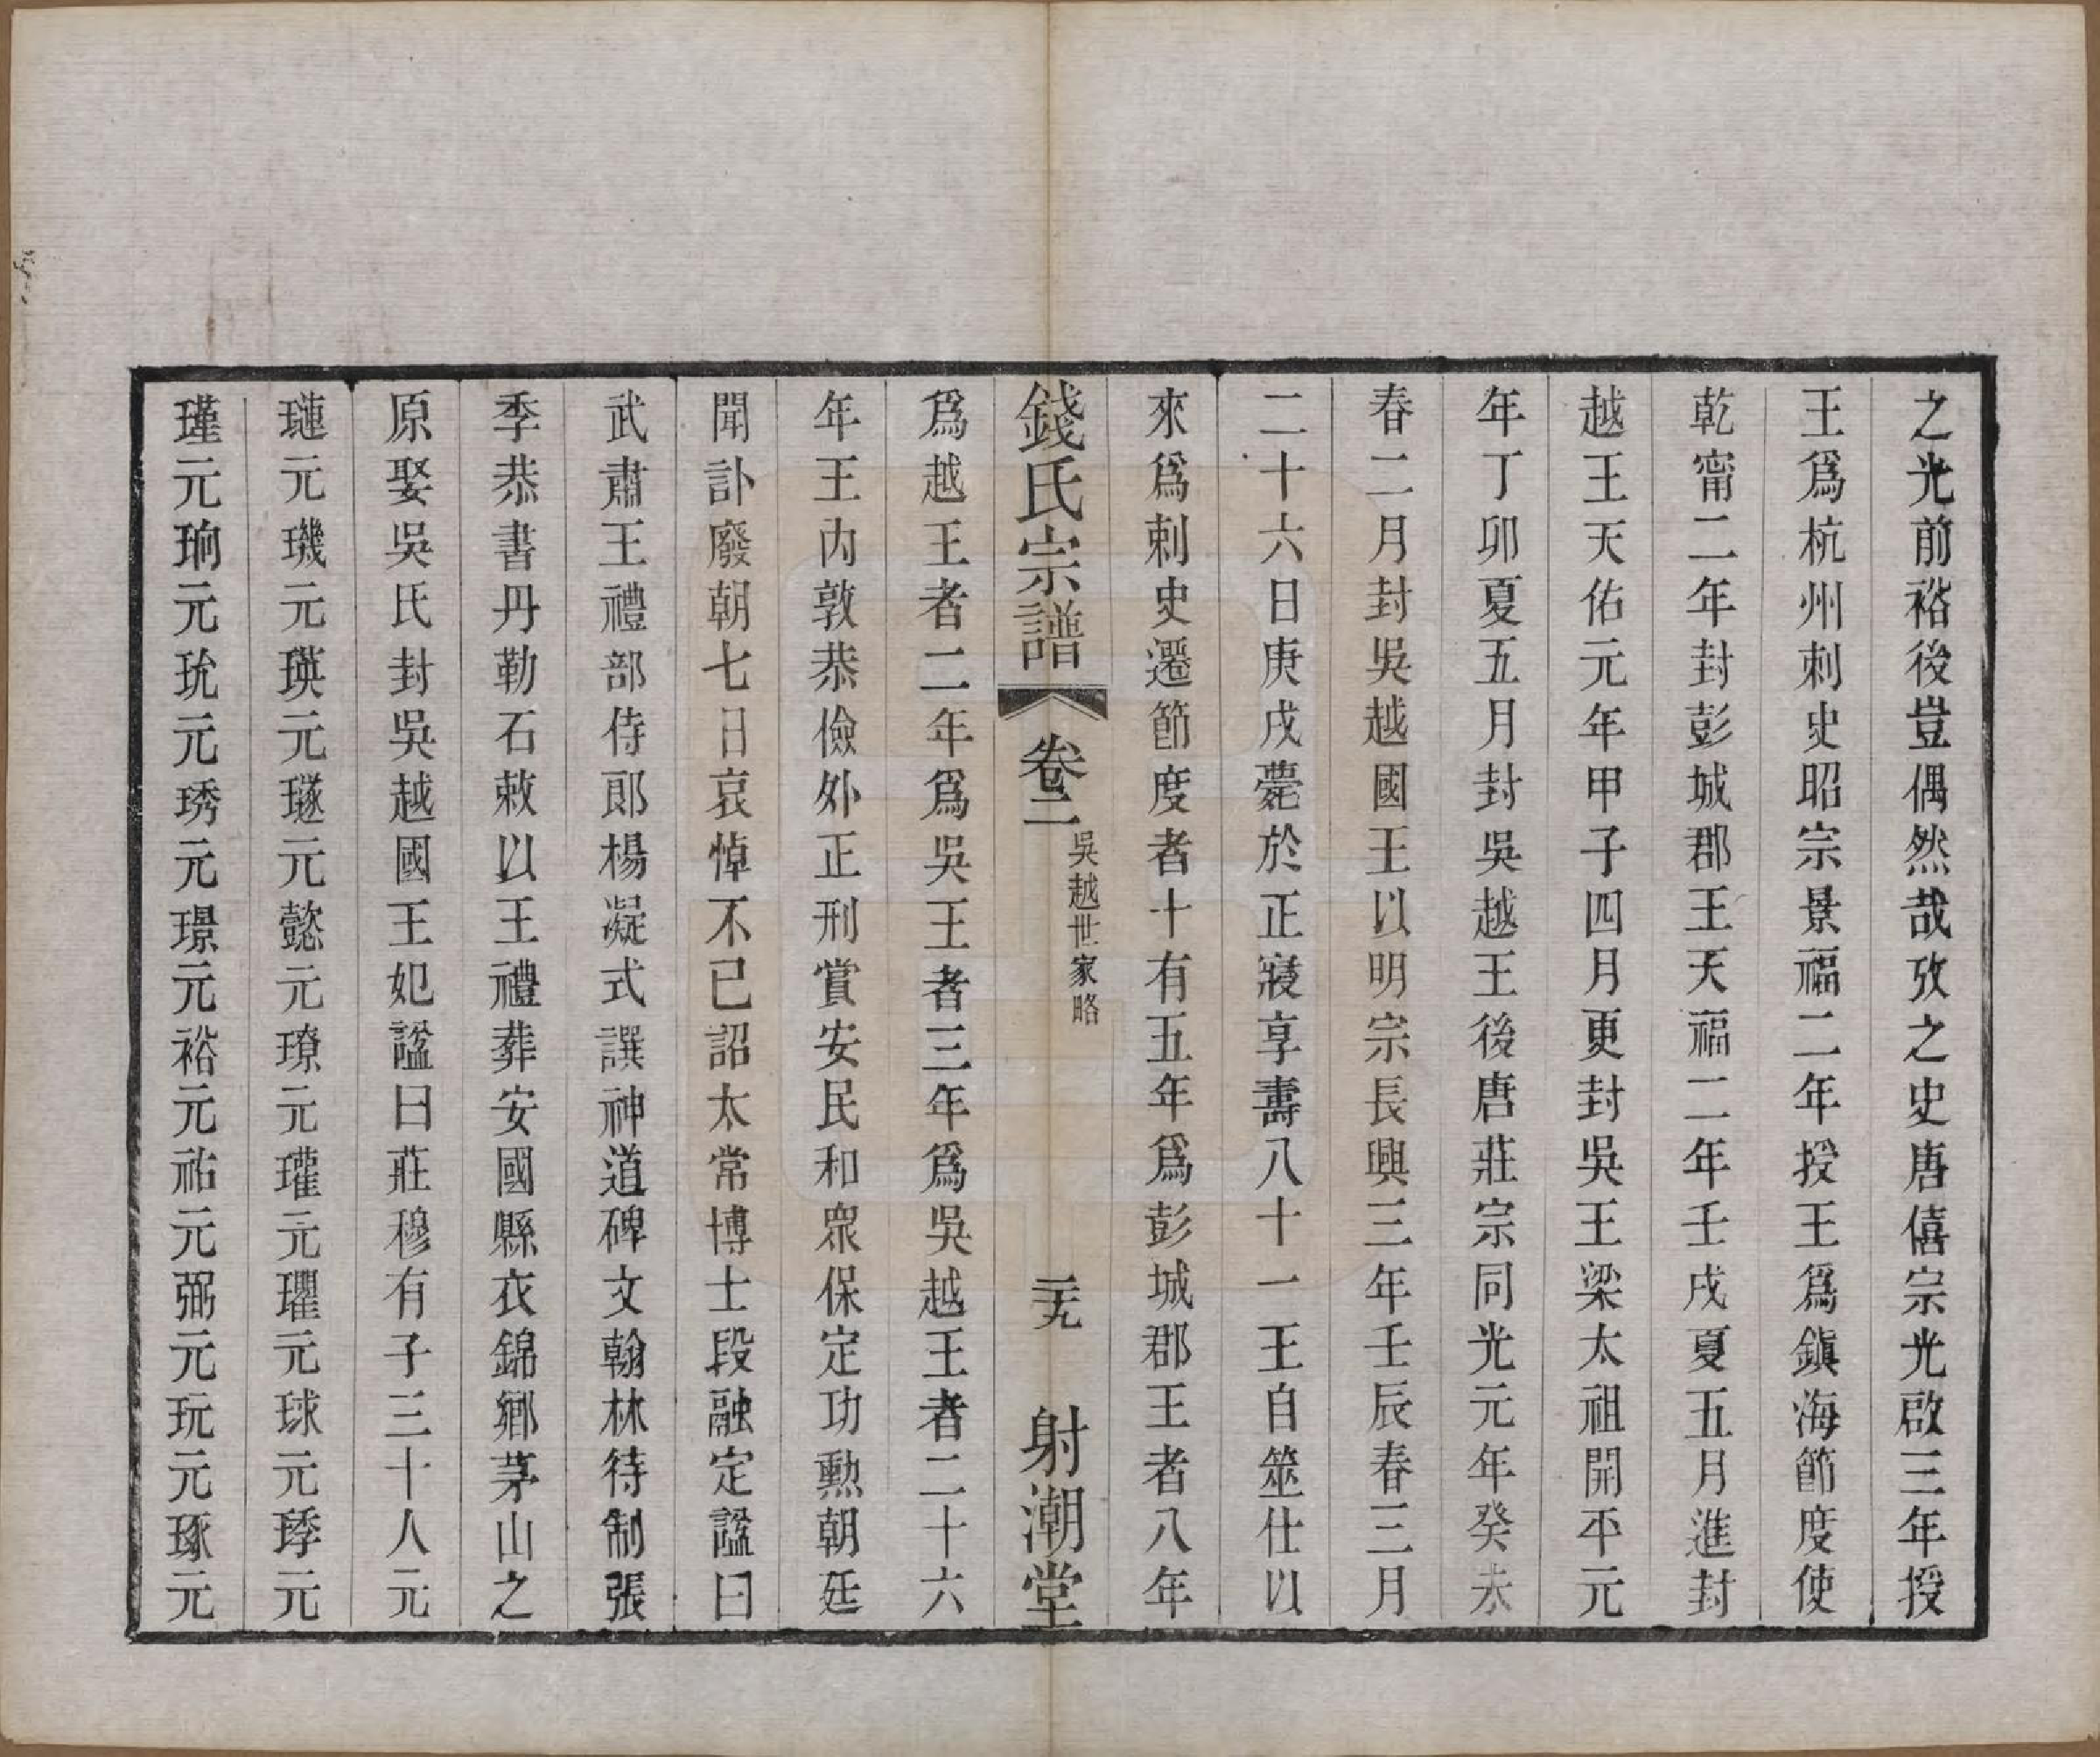 之光前裕後豈偶然哉攷之史唐僖宗光啟三年授
王爲杭州刺史昭宗景福二年授王爲鎭海節度使
乾甯二年封彭城郡王天福二年壬戌夏五月進封
越王天佑元年甲子四月更封吳王梁太祖開平元
年丁卯夏五月封吳越王後唐莊宗同光元年癸未
春二月封吳越國王以明宗長興三年壬辰春三月
二十六日庚戌薨於正寢享壽八十一王自筮仕以
來爲刺史遷節度者十有五年爲彭城郡王者八年
錢氏宗譜 卷二 吳越世家略 二十九 射潮堂
爲越王者二年爲吳王者三年爲吳越王者二十六
年王內敦恭儉外正刑賞安民和眾保定功勲朝廷
聞訃廢朝七日哀悼不已詔太常博士段融定謚曰
武肅王禮部侍郎楊凝式譔神道碑文翰林待制張
季恭書丹勒石敕以王禮葬安國縣衣錦鄉茅山之
原娶吳氏封吳越國王妃謚曰莊穆有子三十人元
璉元璣元瑛元璲元懿元璙元瓘元瓁元球元㻑元
瑾元珦元珫元琇元璟元裕元祐元弼元玩元琢元